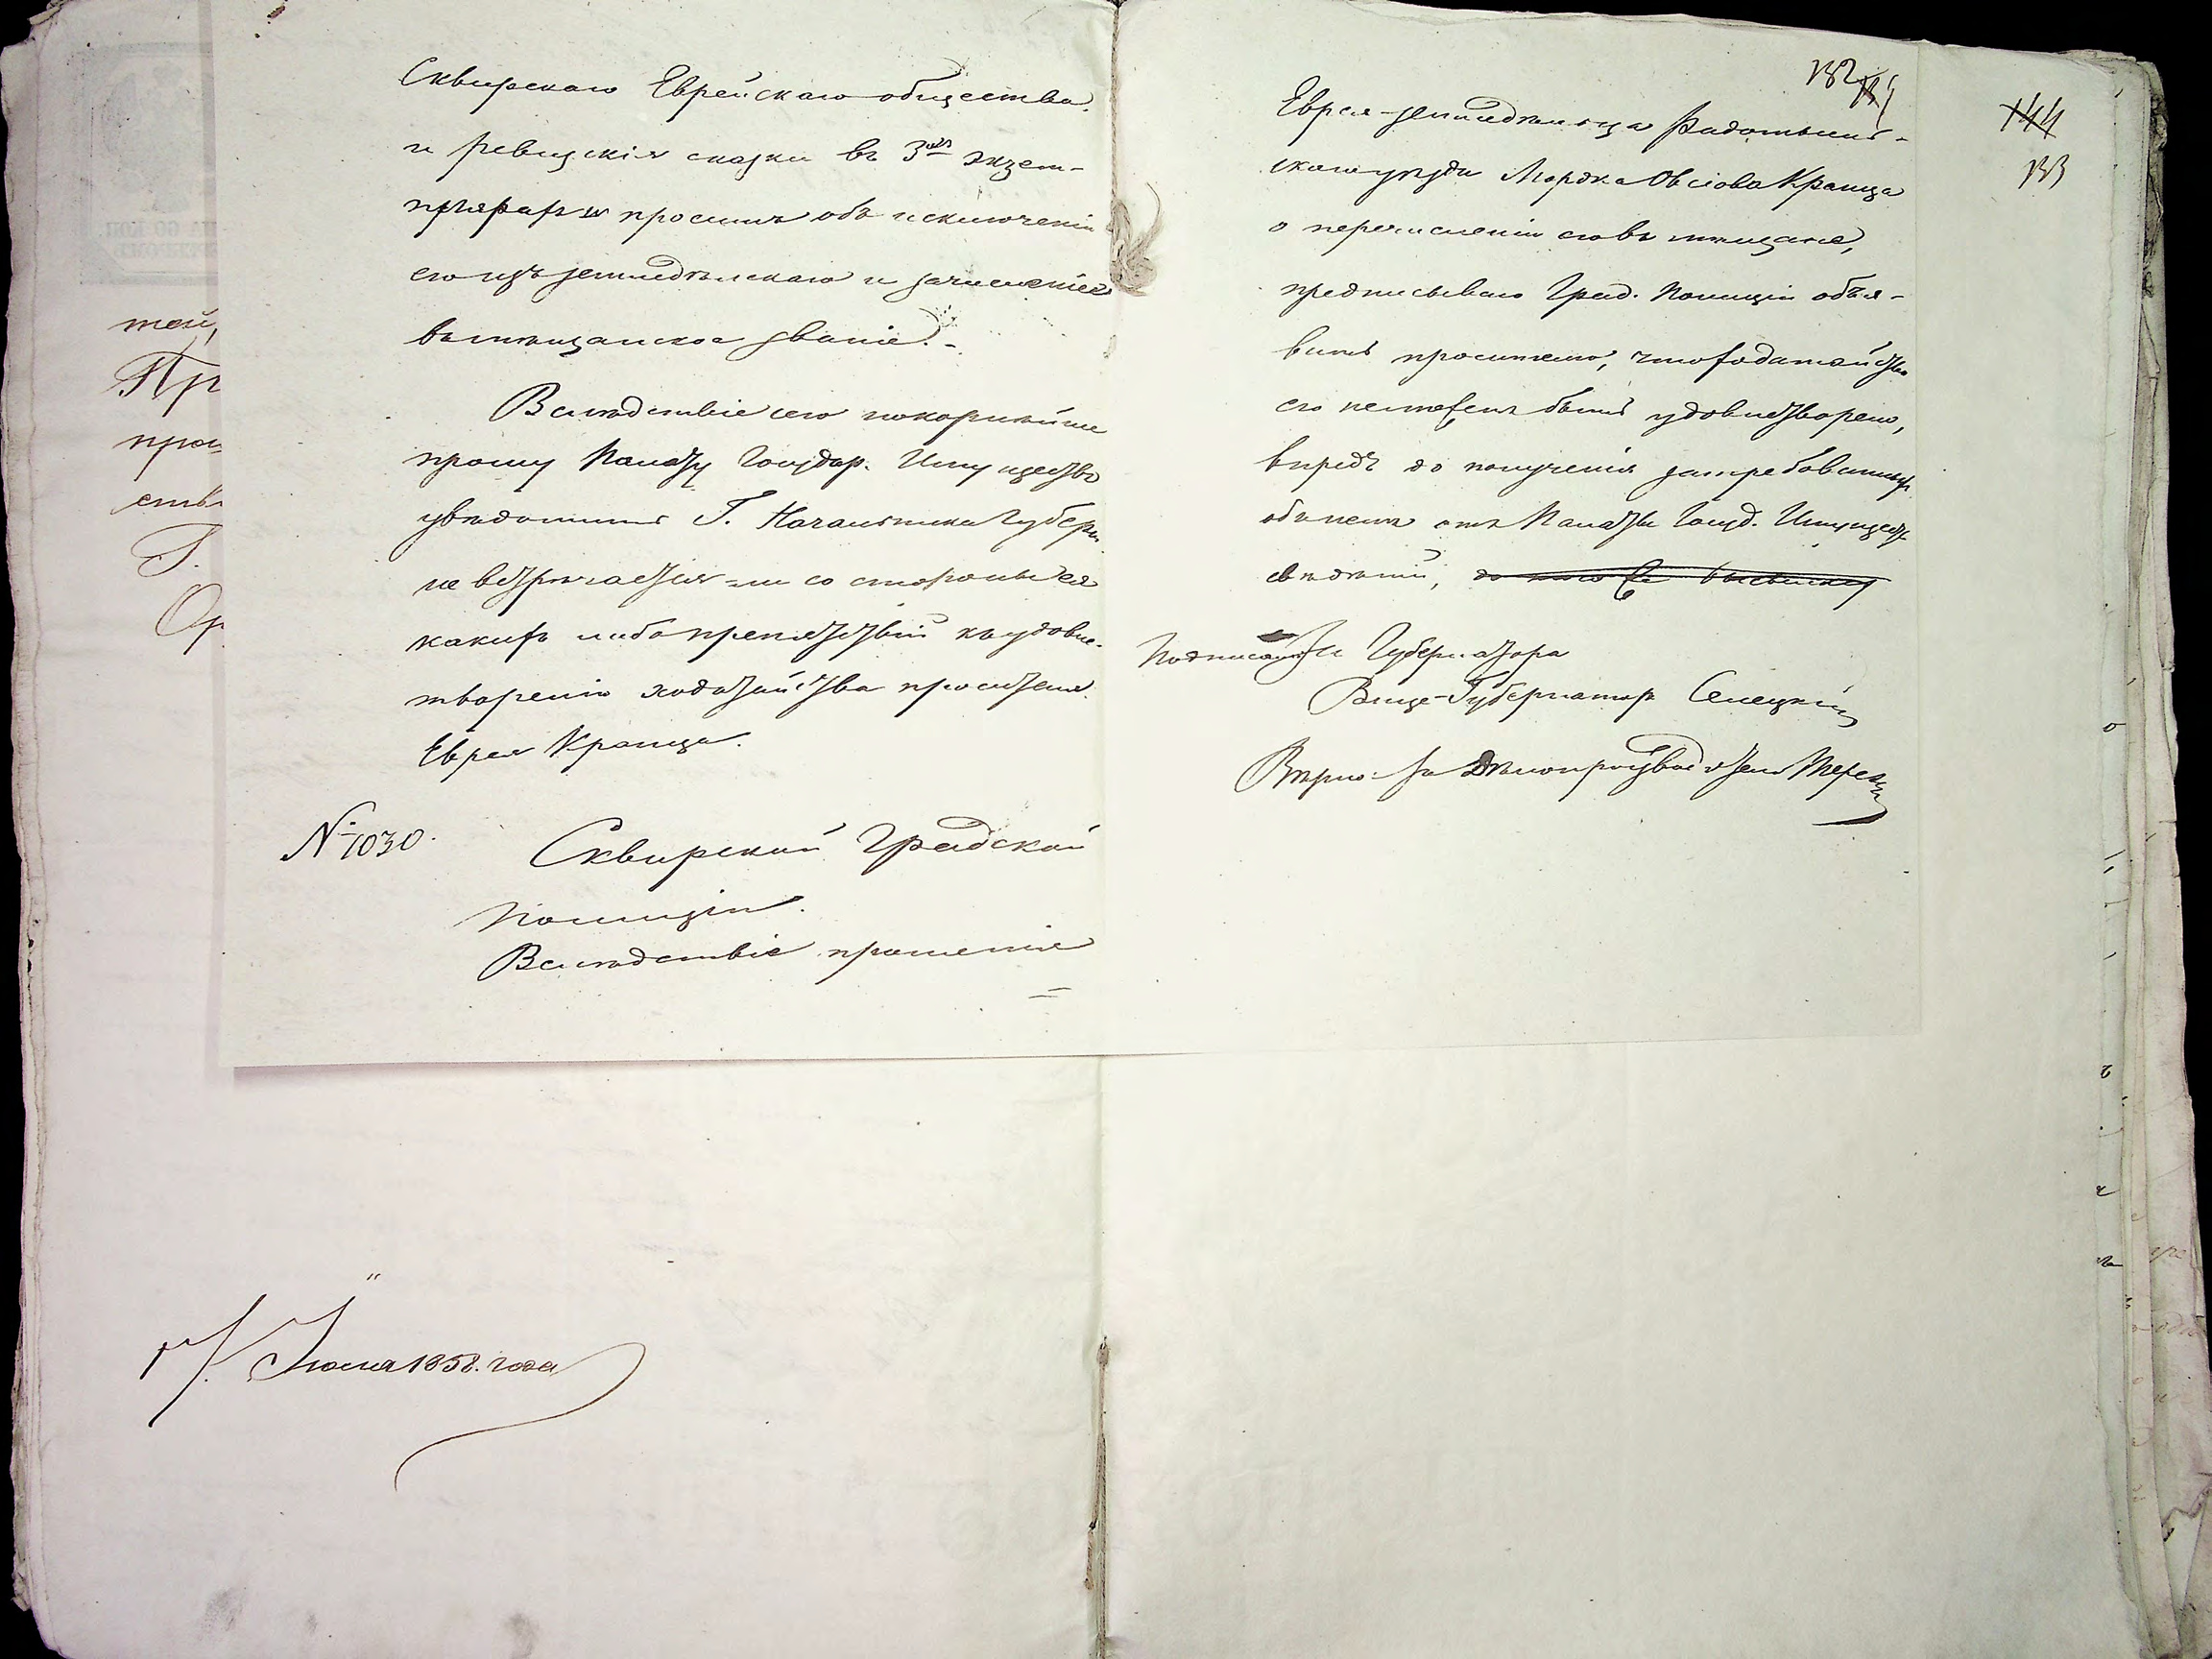 Сквирскаго Еврейскаго общества
и ревизскія сказки въ 3хъ экзем-
плярахъ и проситъ объ исключеніи
его изъ земледѣльскаго и зачисленіе
въ мѣщанское званіе. -
Вслѣдствіе сего покорнѣйше
прошу Палату Государ. Имуществъ
увѣдомить Г. Начальника Губерн.
не встрѣчается-ли со стороны ея
какихъ либо препятствій къ удовле-
творенію ходатайства просителя
Еврея Кранца.
№ 1030.
Сквирской Градской
Полиціи.
Вслѣдствіе прошенія
=
132
Еврея-земледѣльца Радомысль-
скаго уѣзда Мордка Овсіова Кранца
о перечисленіи его въ мѣщане,
предписываю Град. Полиціи объя-
вить просителю, что ходатайство
его не можетъ быть удовлетворено,
впредь до полученія затребованныхъ
объ немъ отъ Палаты Госуд. Имуществ
свѣдѣній,
Подписалъ За Губернатора
Вице-Губернаторъ Селецкій
Вѣрно: За Дѣлопроизводителя
144
133
тей,
Пр
прош
ств
Г.
Ор
Іюля 1858. года